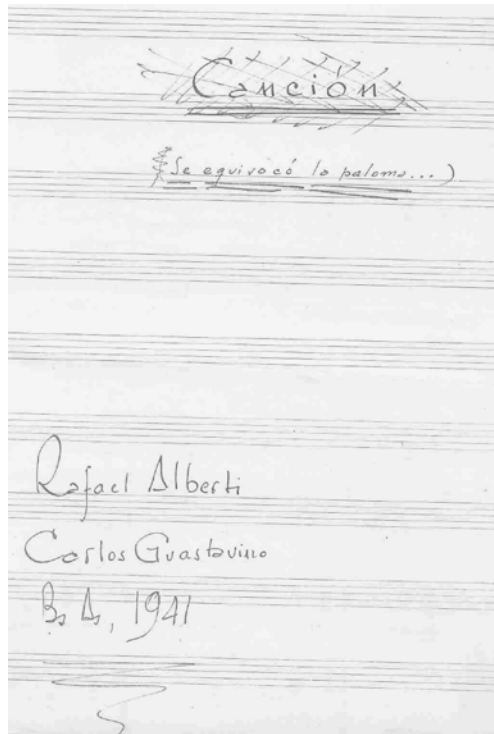 Canción
(Se equivocó la paloma...)
Rafael Alberti
Carlos Guastavino
Bs As, 1941